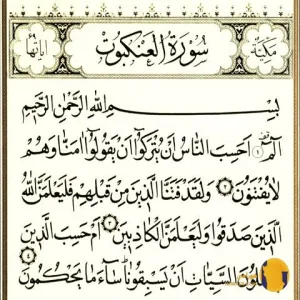 مكية
سُورَةُ الْعَنْكَبُوتِ
اياتها ٦٩
بِسْمِ اللّٰهِ الرَّحْمٰنِ الرَّحِيمِ
الٓمٓ ١ اَحَسِبَ النَّاسُ اَنْ يُتْرَكُوا اَنْ يَقُولُوا اٰمَنَّا وَهُمْ
لَا يُفْتَنُونَ ٢ وَلَقَدْ فَتَنَّا الَّذِينَ مِنْ قَبْلِهِمْ فَلَيَعْلَمَنَّ اللّٰهُ
الَّذِينَ صَدَقُوا وَلَيَعْلَمَنَّ الْكَاذِبِينَ ٣ اَمْ حَسِبَ الَّذِينَ
يَعْمَلُونَ السَّيِّئَاتِ اَنْ يَسْبِقُونَا سَاءَ مَا يَحْكُمُونَ ٤